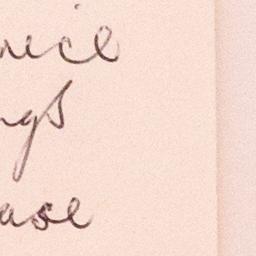 nice
ngs
ase